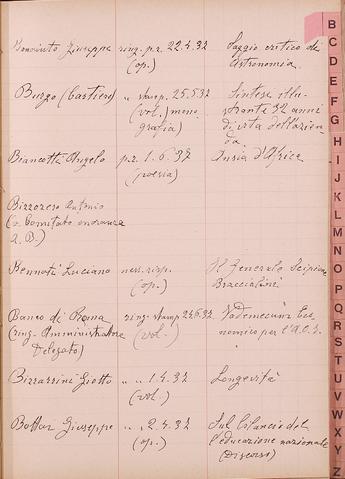 Benvenuto Giuseppe ring. p.r. 22.4.32 Saggio critico di
(op.) Astronomia.
Burgo (Cartiere) " stamp. 25.5.32 Sintesi illu-
(vol.) mono strante 32 anni
grafia) di vita dell'azien
da.
Biancotti Angelo p.r. 1.6.32 Ansia d'Africa
(poesia)
Bizzozero Antonio
(v. Comitato onoranza
a. B.)
Bennati Luciano ness. risp. Il Generale Scipione
(op.) Bracciolini
Banco di Roma ring. stamp 24.6.32 Vademecum Eco
(ring. Amministratore (vol.) nomico per l'A.O.I.
Delegato)
Bizzarrini Giotto " " 1.4.32 Longevità
(vol.)
Bottai Giuseppe " " 2.4.32 Sul bilancio del
(op.) l'educazione nazionale
(Discorso)
B
C
D
E
F
G
H
I
J
K
L
M
N
O
P
Q
R
S
T
U
V
W
X
Y
Z